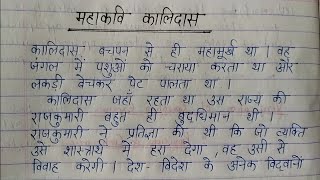 महाकवि कालिदास
कालिदास बचपन से ही महामूर्ख था। वह
जंगल में पशुओं को चराया करता था और
लकड़ी बेचकर पेट पालता था।
कालिदास जहाँ रहता था उस राज्य की
राजकुमारी बहुत ही बुद्धिमान थी।
राजकुमारी ने प्रतिज्ञा की थी कि जो व्यक्ति
उसे शास्त्रार्थ में हरा देगा, वह उसी से
विवाह करेगी। देश-विदेश के अनेक विद्वानों